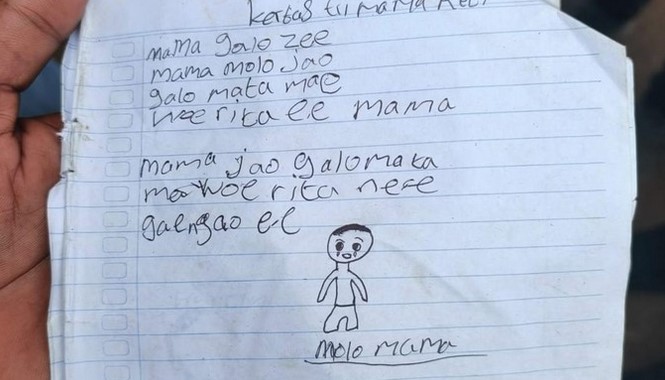 kertas tii mama reti
mama galo zee
mama molo jao
galo mata mae
woe rita ee mama
mama jao galo mata
mae woe rita ne'e
gaengao ee
molo mama